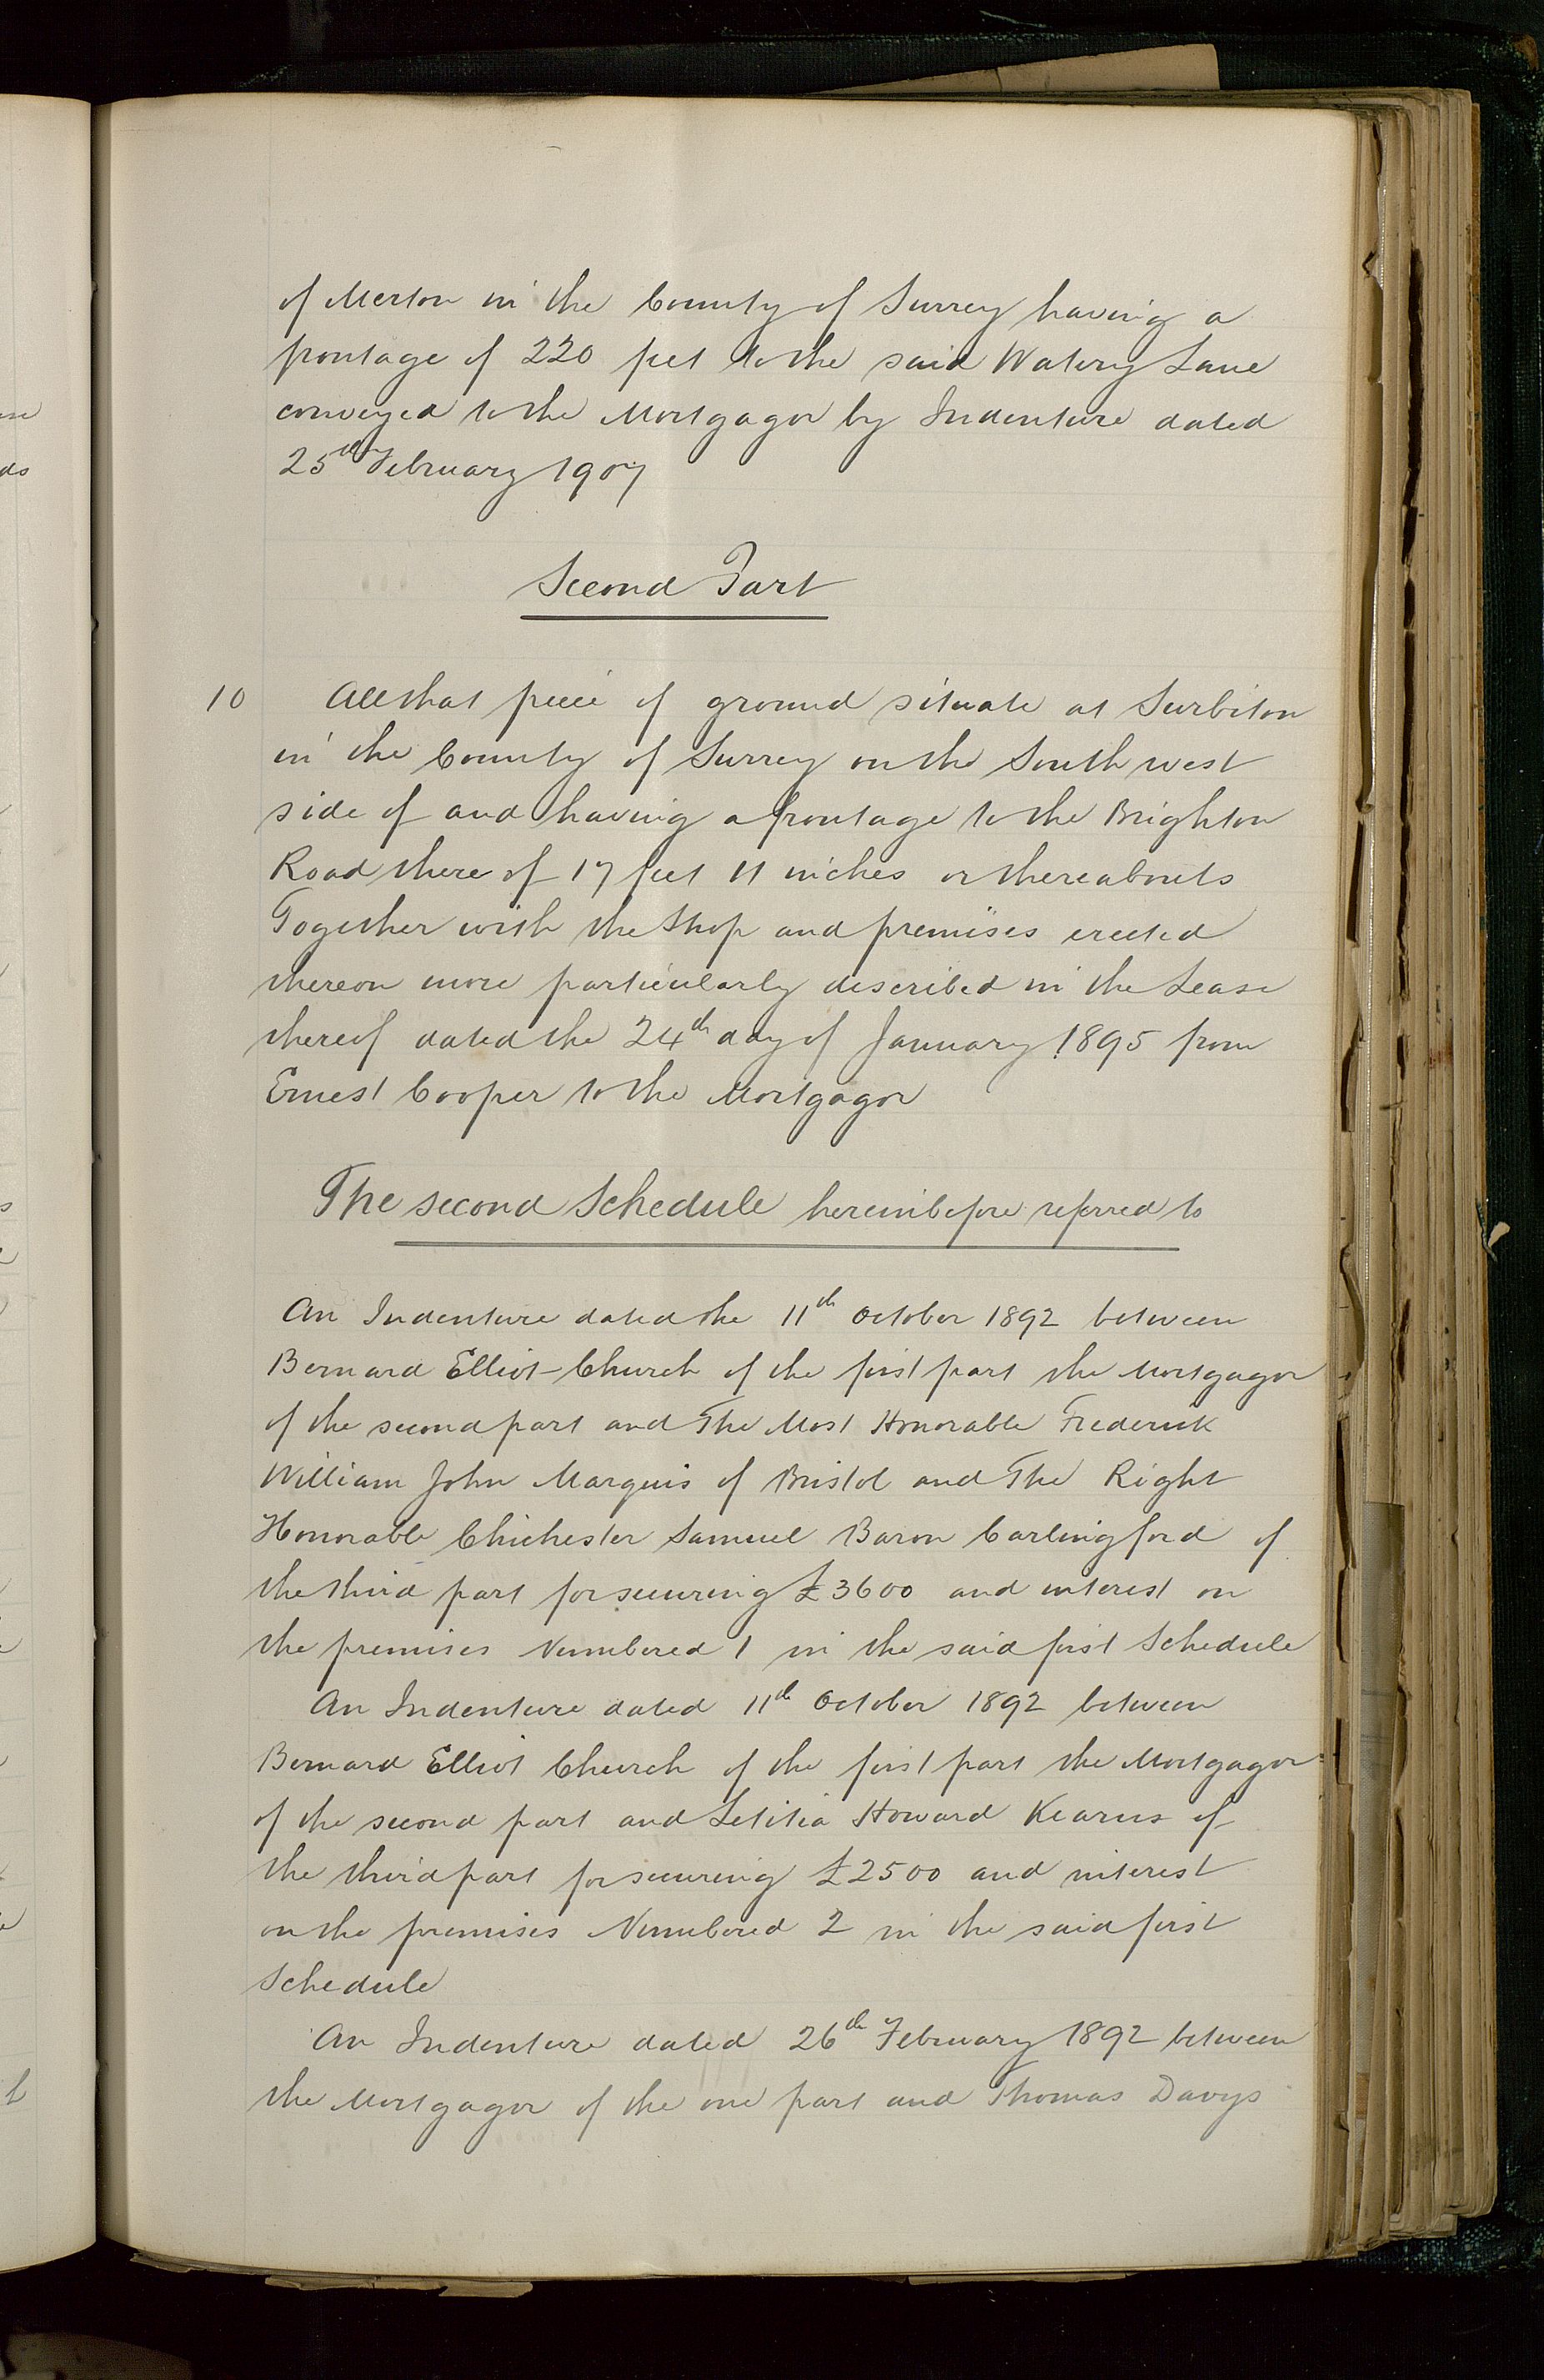 of Merton in the County of Surrey having a
frontage of 220 feet to the said Watery Lane
conveyed to the Mortgagor by Indenture dated
25th February 1907
Second Part
10 All that piece of ground situate at Surbiton
in the County of Surrey on the South west
side of and having a frontage to the Brighton
Road there of 17 feet 11 inches or thereabouts
Together with the Shop and premises erected
thereon more particularly described in the Lease
thereof dated the 24th day of January 1895 from
Ernest Cooper to the Mortgagor
The second Schedule hereinbefore referred to
An Indenture dated the 11th October 1892 between
Bernard Elliot Church of the first part the Mortgagor
of the second part and The Most Honorable Frederick
William John Marquis of Bristol and The Right
Honorable Chichester Samuel Baron Carlingford of
the third part for securing £3600 and interest on
the premises Numbered 1 in the said first Schedule
An Indenture dated 11th October 1892 between
Bernard Elliot Church of the first part the Mortgagor
of the second part and Letitia Howard Kearns of
the third part for securing £2500 and interest
on the premises Numbered 2 in the said first
Schedule
An Indenture dated 26th February 1892 between
the Mortgagor of the one part and Thomas Davys